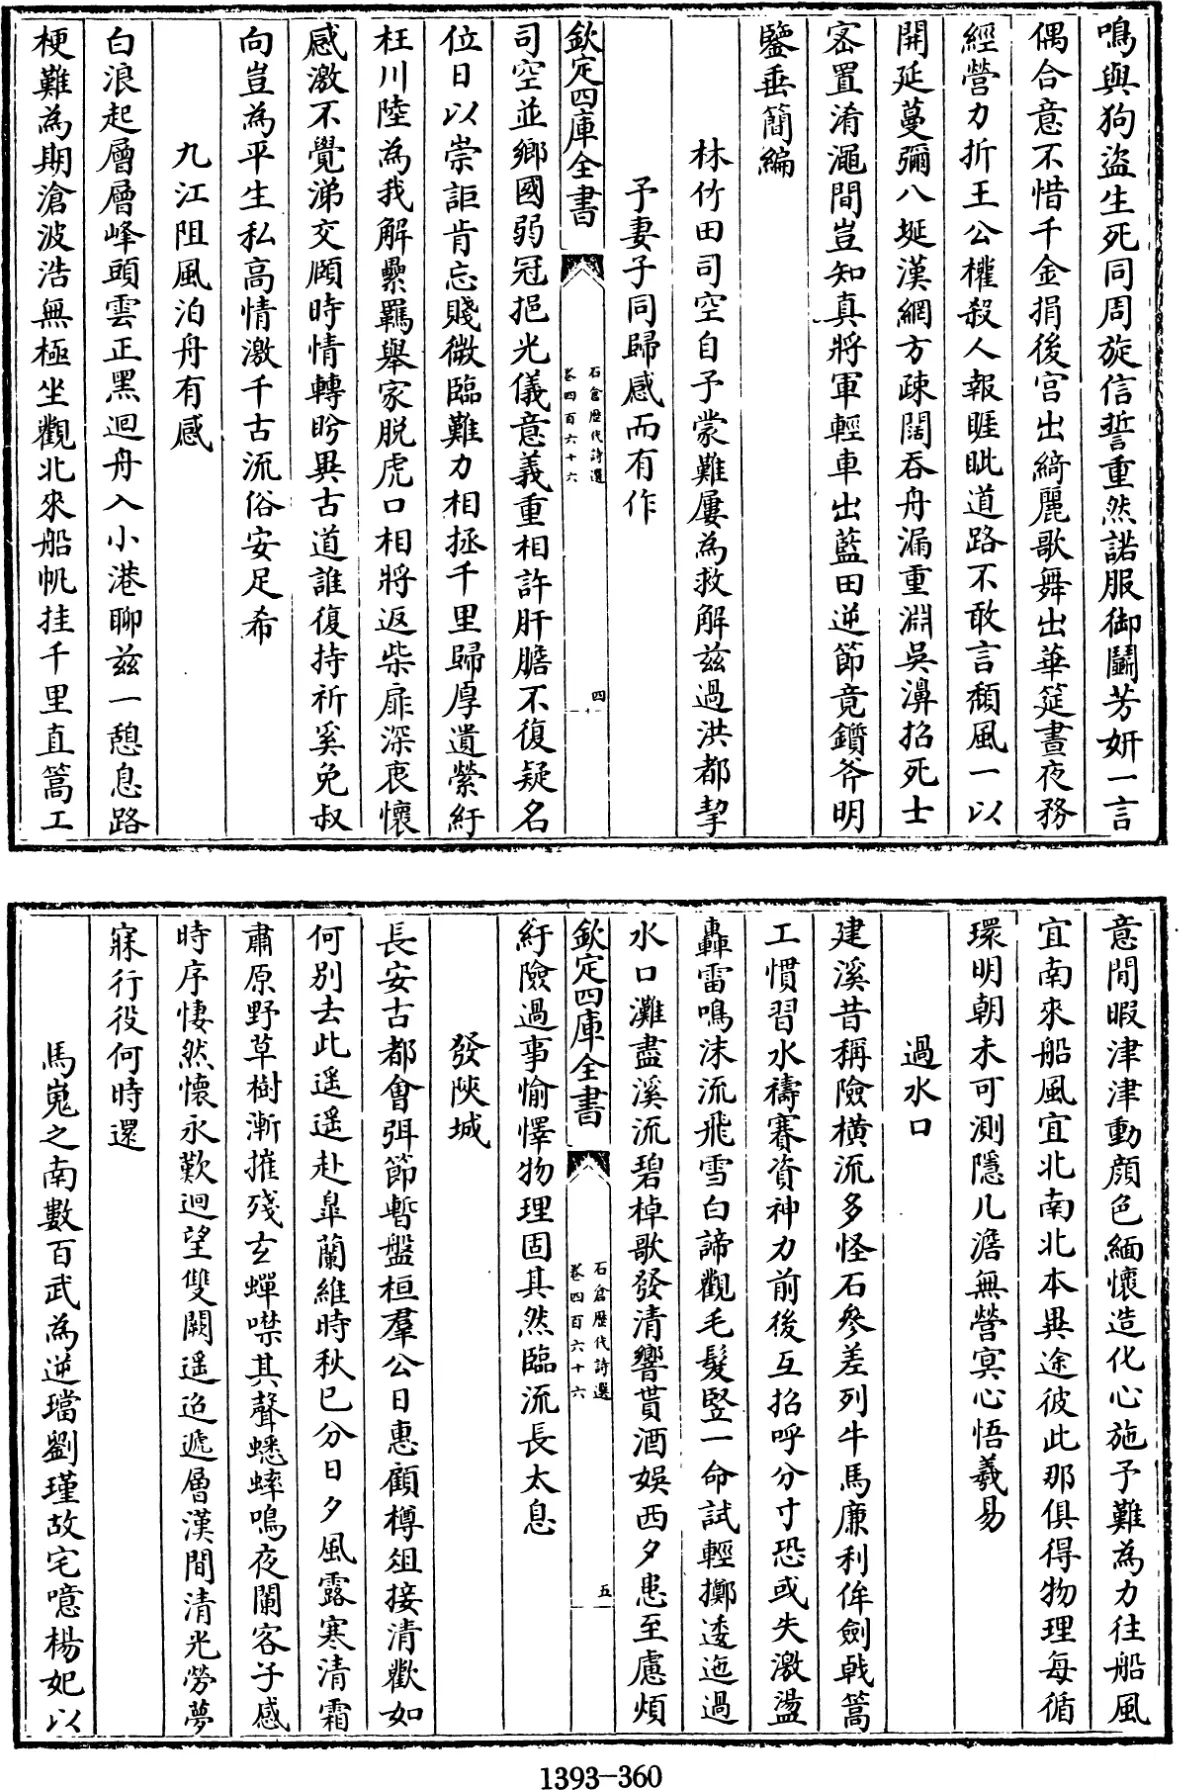 鳴與狗盜生死同周旋信誓重然諾服御鬭芳姸一言
偶合意不惜千金捐後宮出綺麗歌舞出華筵晝夜務
經營力折王公權殺人報睚眦道路不敢言頽風一以
開延蔓彌八埏漢網方疎闊吞舟漏重淵吳濞招死士
密置淆澠間豈知真將軍輕車出藍田逆節竟鑕斧明
鑒垂簡編
林竹田司空自予蒙難屢為救解兹過洪都挈
予妻子同歸感而有作
欽定四庫全書
石倉歷代詩選
卷四百六十六
四
司空並鄉國弱冠挹光儀意義重相許肝膽不復疑名
位日以崇詎肯忘賤微臨難力相拯千里歸厚遺縈紆
枉川陸為我解纍羈舉家脱虎口相將返柴扉深衷懷
感激不覺涕交頤時情轉盼異古道誰復持祈奚免叔
向豈為平生私高情激千古流俗安足希
九江阻風泊舟有感
白浪起層層峰頭雲正黑迴舟入小港聊兹一憩息路
梗難為期滄波浩無極坐觀北來船帆挂千里直篙工
意閒暇津津動顔色緬懷造化心施予難為力往船風
宜南來船風宜北南北本異途彼此那俱得物理每循
環明朝未可測隱几澹無營冥心悟羲易
過水口
建溪昔稱險横流多怪石參差列牛馬廉利侔劍戟篙
工慣習水禱賽資神力前後互招呼分寸恐或失激盪
轟雷鳴沫流飛雪白諦觀毛髮豎一命試輕擲逶迤過
水口灘盡溪流碧棹歌發清響貰酒娛西夕患至慮煩
欽定四庫全書
石倉歷代詩選
卷四百六十六
五
紆險過事愉懌物理固其然臨流長太息
發陜城
長安古都會弭節暫盤桓羣公日惠顧樽俎接清歡如
何别去此遥遥赴臯蘭維時秋已分日夕風露寒清霜
肅原野草樹漸摧殘玄蟬噤其聲蟋蟀鳴夜闌客子感
時序悽然懷永歎迴望雙闕遥迢遞層漢間清光勞夢
寐行役何時還
馬嵬之南數百武為逆璫劉瑾故宅噫楊妃以
1393-360